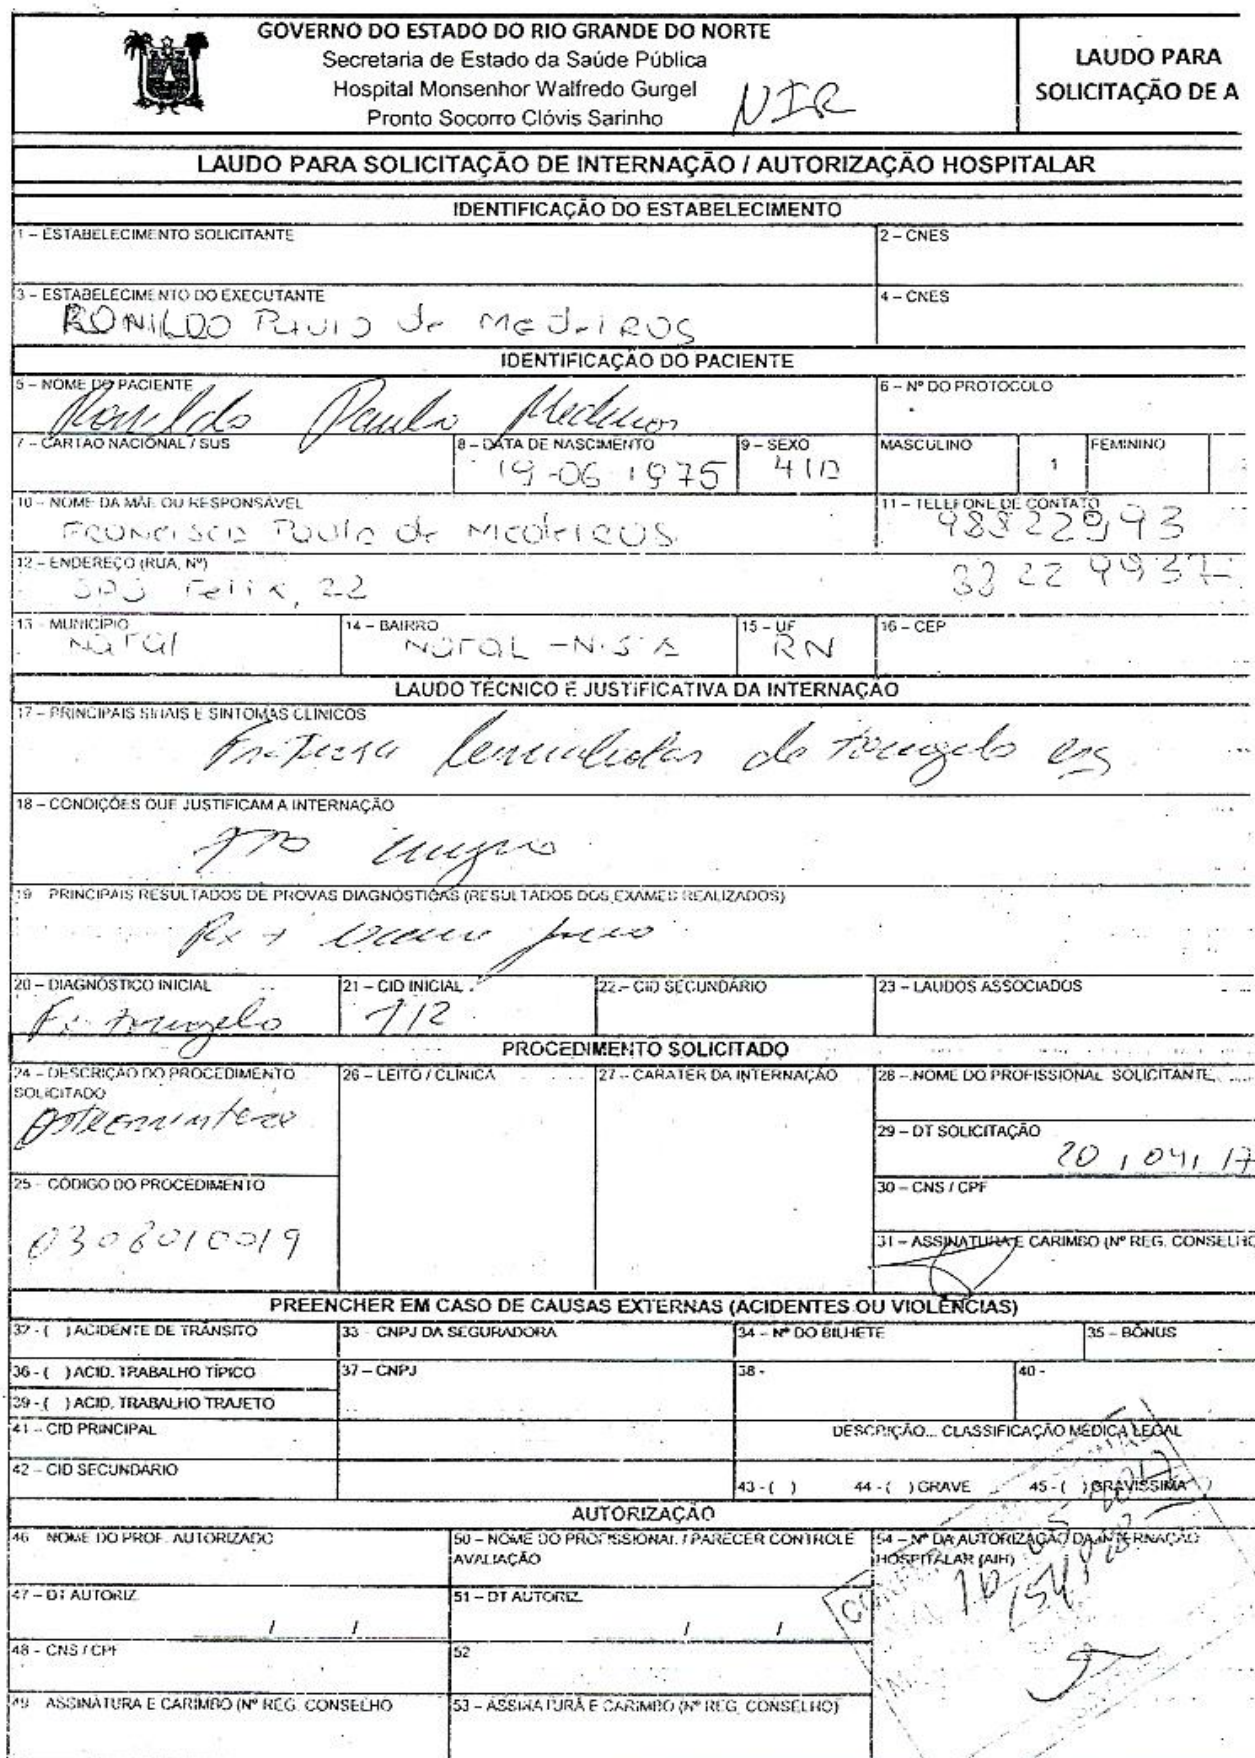 GOVERNO DO ESTADO DO RIO GRANDE DO NORTE
Secretaria de Estado da Saúde Pública
Hospital Monsenhor Walfredo Gurgel
Pronto Socorro Clóvis Sarinho
NIR
LAUDO PARA
SOLICITAÇÃO DE A
LAUDO PARA SOLICITAÇÃO DE INTERNAÇÃO / AUTORIZAÇÃO HOSPITALAR
IDENTIFICAÇÃO DO ESTABELECIMENTO
1 – ESTABELECIMENTO SOLICITANTE
2 – CNES
3 – ESTABELECIMENTO DO EXECUTANTE
RONILDO Paulo de Medeiros
4 – CNES
IDENTIFICAÇÃO DO PACIENTE
5 – NOME DO PACIENTE
Ronildo Paulo Medeiros
6 – Nº DO PROTOCOLO
7 – CARTÃO NACIONAL / SUS
8 – DATA DE NASCIMENTO
19-06-1975
9 – SEXO
MASCULINO 1
FEMININO
10 – NOME DA MÃE OU RESPONSÁVEL
Francisca Paula de Medeiros
11 – TELEFONE DE CONTATO
12 – ENDEREÇO (RUA, Nº)
Felix, 22
13 – MUNICÍPIO
Natal
14 – BAIRRO
Natal
15 – UF
RN
16 – CEP
LAUDO TÉCNICO E JUSTIFICATIVA DA INTERNAÇÃO
17 – PRINCIPAIS SINAIS E SINTOMAS CLÍNICOS
Fratura de tornozelo esq
18 – CONDIÇÕES QUE JUSTIFICAM A INTERNAÇÃO
19 PRINCIPAIS RESULTADOS DE PROVAS DIAGNÓSTICAS (RESULTADOS DOS EXAMES REALIZADOS)
Rx + exame físico
20 – DIAGNÓSTICO INICIAL
Fx tornozelo
21 – CID INICIAL
22 – CID SECUNDÁRIO
23 – LAUDOS ASSOCIADOS
PROCEDIMENTO SOLICITADO
24 – DESCRIÇÃO DO PROCEDIMENTO
SOLICITADO
26 – LEITO / CLÍNICA
27 – CARATER DA INTERNAÇÃO
28 – NOME DO PROFISSIONAL SOLICITANTE
29 – DT SOLICITAÇÃO
20 / 04 / 17
25 – CÓDIGO DO PROCEDIMENTO
30 – CNS / CPF
31 – ASSINATURA E CARIMBO (Nº REG. CONSELHO
PREENCHER EM CASO DE CAUSAS EXTERNAS (ACIDENTES OU VIOLÊNCIAS)
32 - ( ) ACIDENTE DE TRÂNSITO
33 - CNPJ DA SEGURADORA
34 – Nº DO BILHETE
35 – BÔNUS
36 - ( ) ACID. TRABALHO TÍPICO
37 – CNPJ
38 -
40 -
39 - ( ) ACID. TRABALHO TRAJETO
41 – CID PRINCIPAL
DESCRIÇÃO... CLASSIFICAÇÃO MÉDICA LEGAL
42 – CID SECUNDARIO
43 - ( )
44 - ( ) GRAVE
45 - ( ) GRAVÍSSIMA
AUTORIZAÇÃO
46 NOME DO PROF. AUTORIZADO
50 – NOME DO PROFISSIONAL / PARECER CONTROLE
AVALIAÇÃO
54 – Nº DA AUTORIZAÇÃO DA INTERNAÇÃO
HOSPITALAR (AIH)
47 – DT AUTORIZ.
/ /
51 – DT AUTORIZ.
/ /
48 – CNS / CPF
52
49 ASSINATURA E CARIMBO (Nº REG. CONSELHO
53 – ASSINATURA E CARIMBO (Nº REG. CONSELHO)